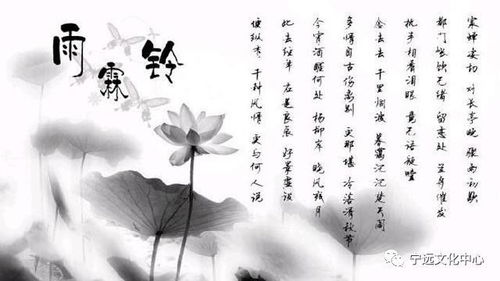 雨霖铃
寒蝉凄切 对长亭晚 骤雨初歇
都门帐饮无绪 留恋处 兰舟催发
执手相看泪眼 竟无语凝噎
念去去 千里烟波 暮霭沉沉楚天阔
多情自古伤离别 更那堪 冷落清秋节
今宵酒醒何处 杨柳岸 晓风残月
此去经年 应是良辰 好景虚设
便纵有 千种风情 更与何人说
宁远文化中心